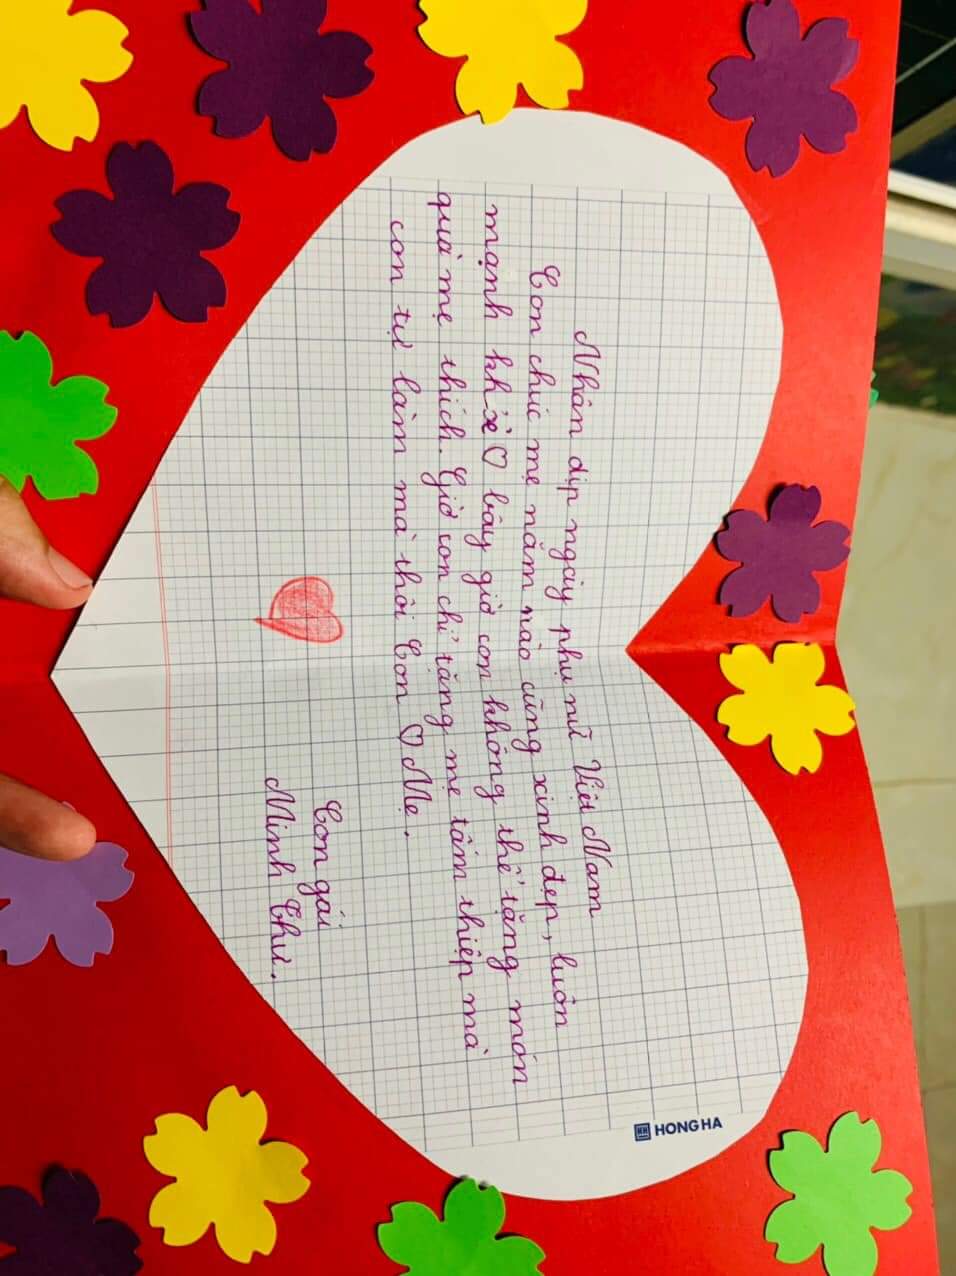 HONG HA
Nhân dịp ngày phụ nữ Việt Nam
Con chúc mẹ năm nào cũng xinh đẹp, luôn
mạnh kh xẻ ♡ bây giờ con không thể tặng món
quà mẹ thích. Giờ con chỉ tặng mẹ tấm thiệp mà
con tự làm mà thôi Con ♡ Mẹ.
Con gái
Minh Thư.